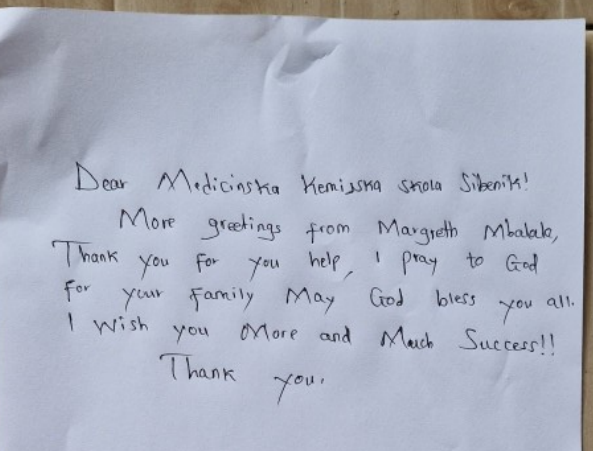 Dear Medicinska Kemijska skola Sibenik!
More greetings from Margreth Mbalale,
Thank you for you help, I pray to God
for your family May God bless you all.
I wish you More and Much Success!!
Thank you.